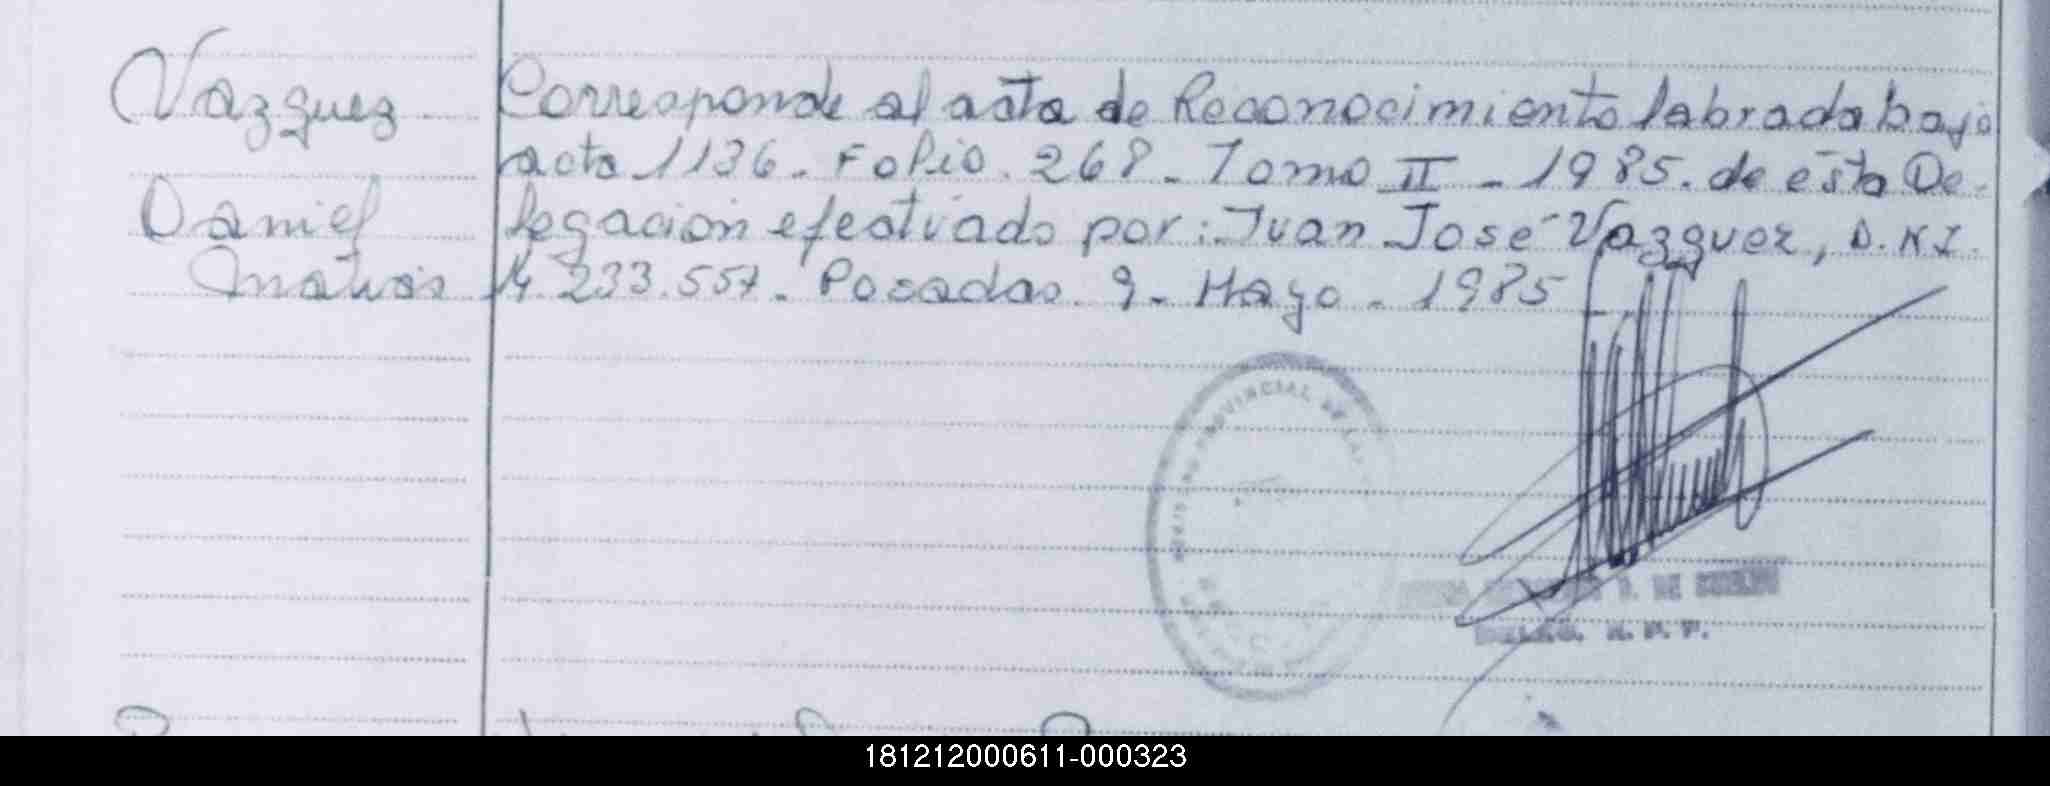 Vazquez
Daniel
Matias
Corresponde al acta de Reconocimiento labrada bajo
acta 1136. Folio. 268. Tomo II - 1985. de esta De-
legación efectuado por: Juan José Vazquez, D.N.I.
14.233.557. Posadas. 9. Mayo. 1985
PROVINCIAL DE LAS
D. DE
DELEG. R. P. P.
181212000611-000323